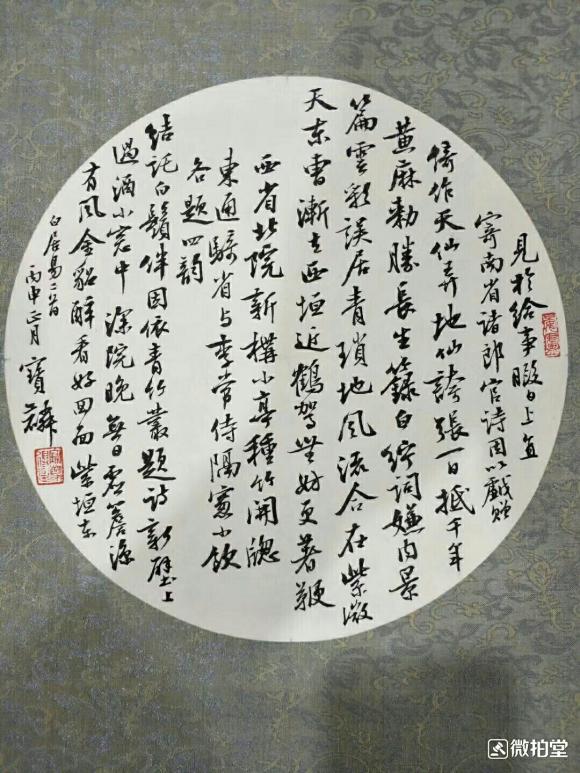 見於給事暇日上直
寄南省诸郎官诗因以戲贈
倚作天仙弄地仙誇張一日抵千年
黄麻勅勝長生籙白紵詞嫌内景
篇雲彩誤居青瑣地風流合在紫微
天东曹漸去西垣近鶴駕無妨更著鞭
西省北院新構小亭種竹開窓
東通騎省与李常侍隔窓小飲
各題四韵
結託白鬚伴因依青竹叢題詩新壁上
過酒小窓中深院晚無日虚簷涼
有風金貂醉看好回面紫垣东
白居易二首
丙申正月
寶麟
微拍堂